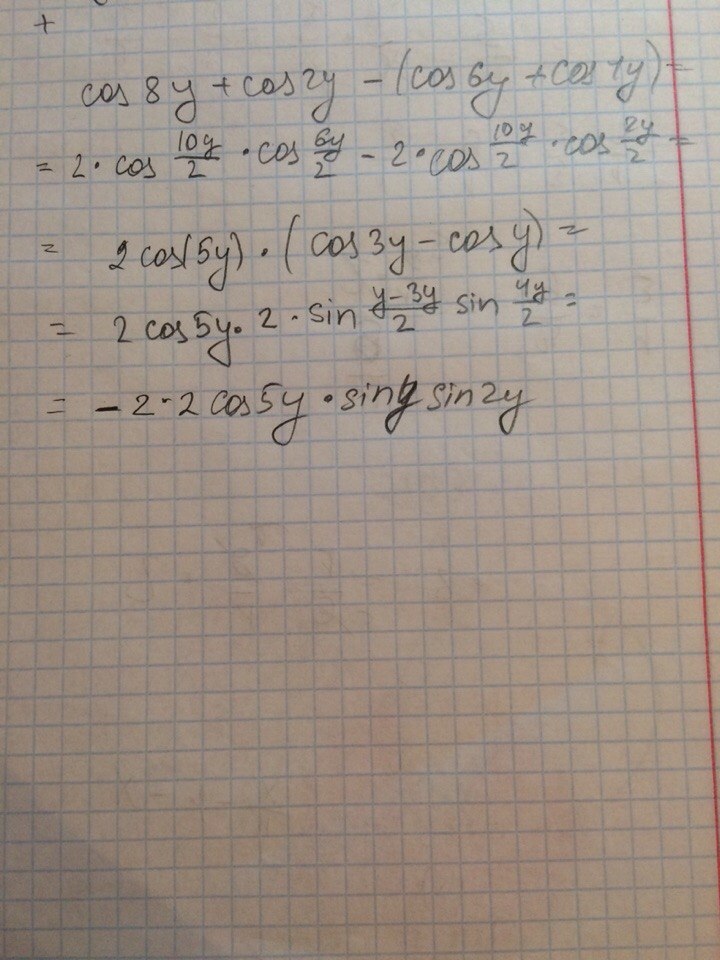 +
cos 8y + cos 2y - (cos 6y + cos 4y) =
= 2 · cos 10y/2 · cos 6y/2 - 2 · cos 10y/2 · cos 2y/2 =
= 2 cos(5y) · (cos 3y - cos y) =
= 2 cos 5y · 2 · sin y-3y/2 sin 4y/2 =
= - 2 · 2 cos 5y · sin y sin 2y